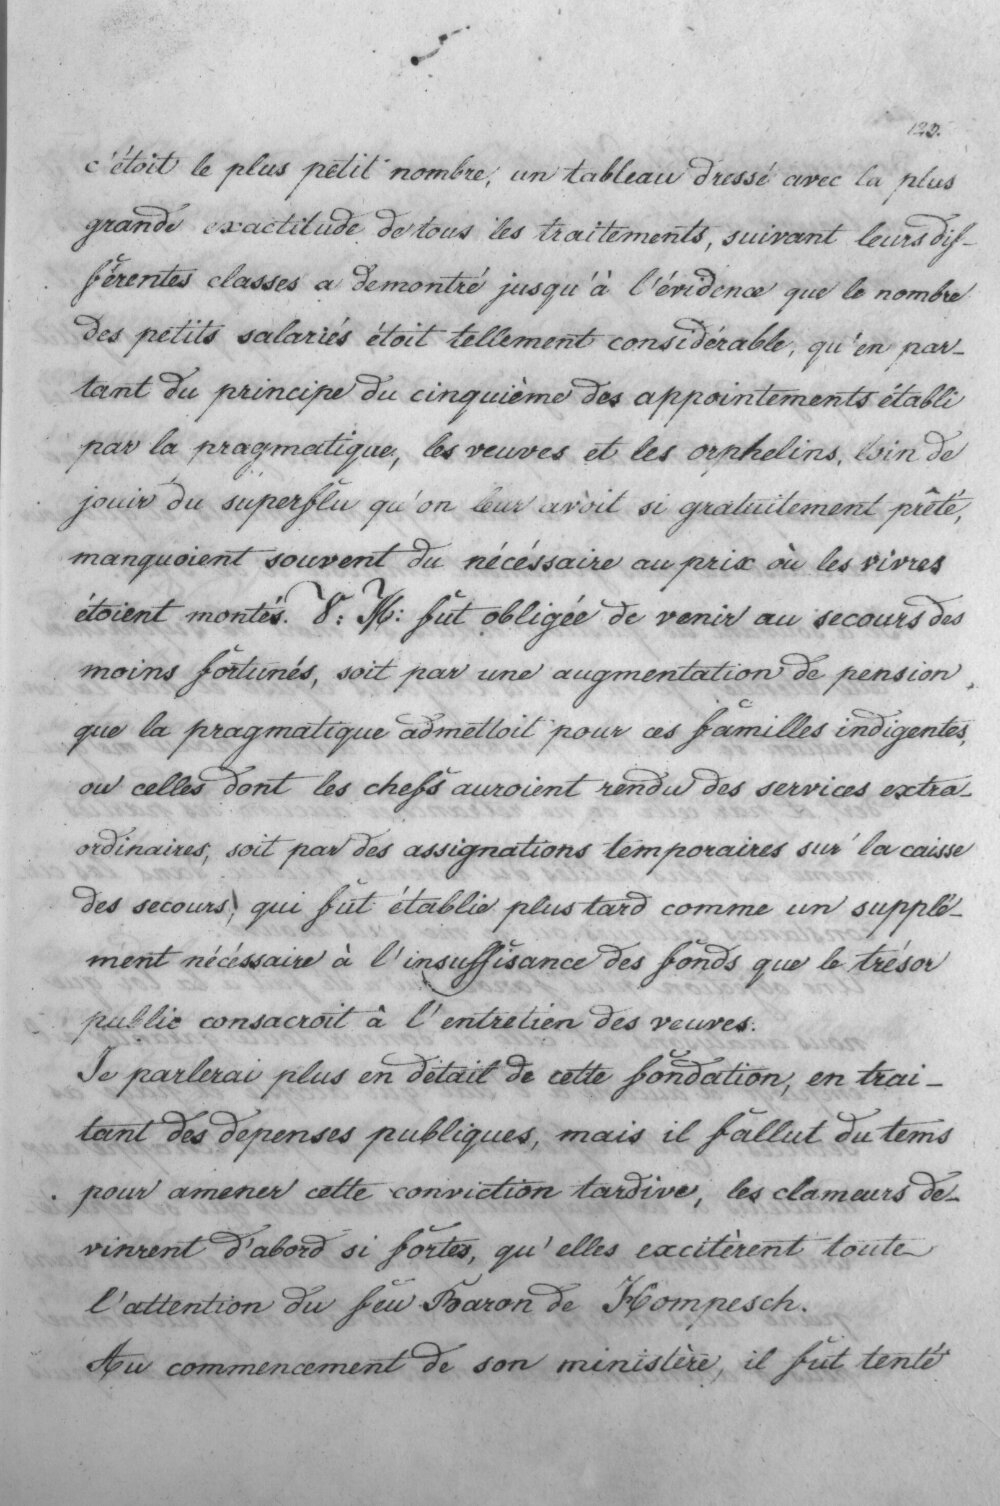 129.
c'étoit le plus petit nombre, un tableau dressé avec la plus
grande exactitude de tous les traitements, suivant leurs dif-
férentes classes a demontré jusqu'à l'évidence que le nombre
des petits salariés étoit tellement considérable, qu'en par-
tant du principe du cinquième des appointements établi
par la pragmatique, les veuves et les orphelins, loin de
jouir du superflu qu'on leur avoit si gratuitement prêté,
manquoient souvent du nécéssaire au prix où les vivres
étoient montés. V: M: fut obligée de venir au secours des
moins fortunés, soit par une augmentation de pension
que la pragmatique admettoit pour ces familles indigentes,
ou celles dont les chefs auroient rendu des services extra-
ordinaires, soit par des assignations temporaires sur la caisse
des secours, qui fut établie plus tard comme un supplé-
ment nécéssaire à l'insuffisance des fonds que le trésor
public consacroit à l'entretien des veuves.
Je parlerai plus en détail de cette fondation, en trai-
tant des depenses publiques, mais il fallut du tems
pour amener cette conviction tardive, les clameurs de-
vinrent d'abord si fortes, qu'elles excitèrent toute
l'attention du feu Baron de Hompesch.
Au commencement de son ministère, il fut tenté